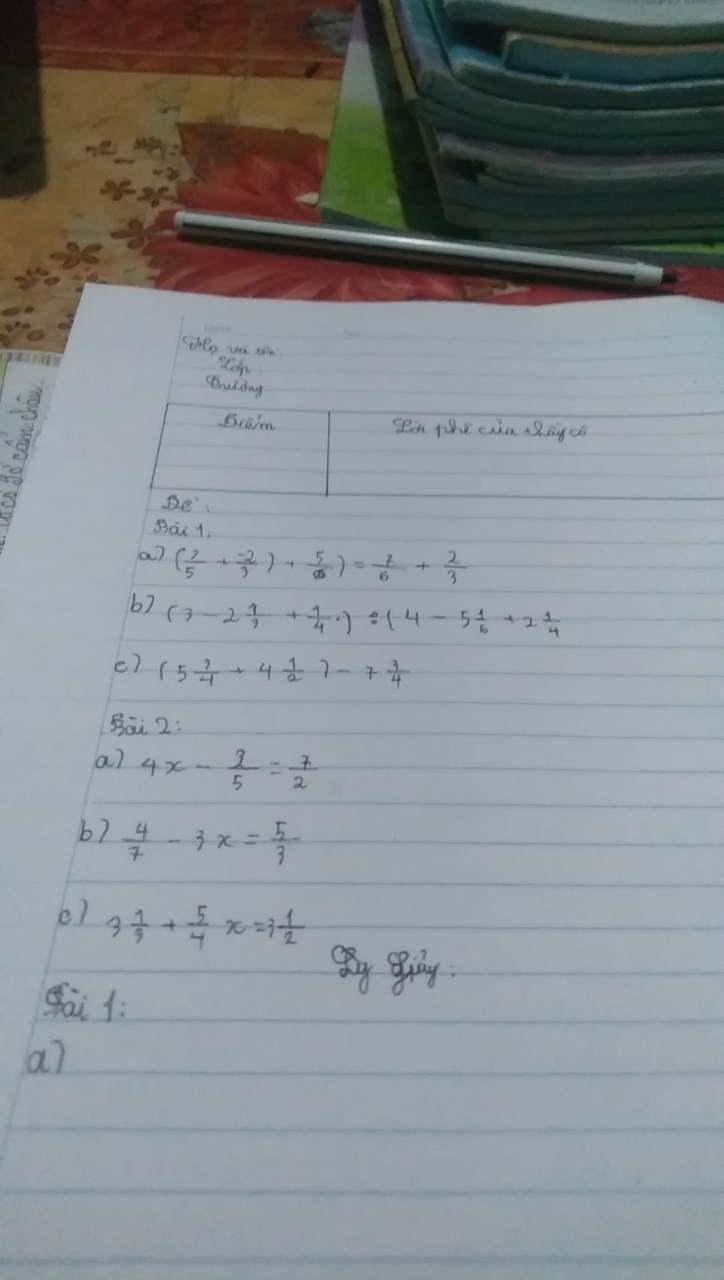 Họ và tên
Lớp
Trường
Điểm
Lời phê của thầy cô
Đề:
Bài 1.
a) (2/5 + -2/3) + 5/6) = 7/6 + 2/3
b) (3 - 2 1/3 + 1/4) : (4 - 5 1/6 + 2 1/4
c) (5 3/4 + 4 1/2) - 7 3/4
Bài 2:
a) 4x - 3/5 = 7/2
b) 4/7 - 3x = 5/3
c) 3 1/3 + 5/4 x = 3 1/2
Bài 1:
a)